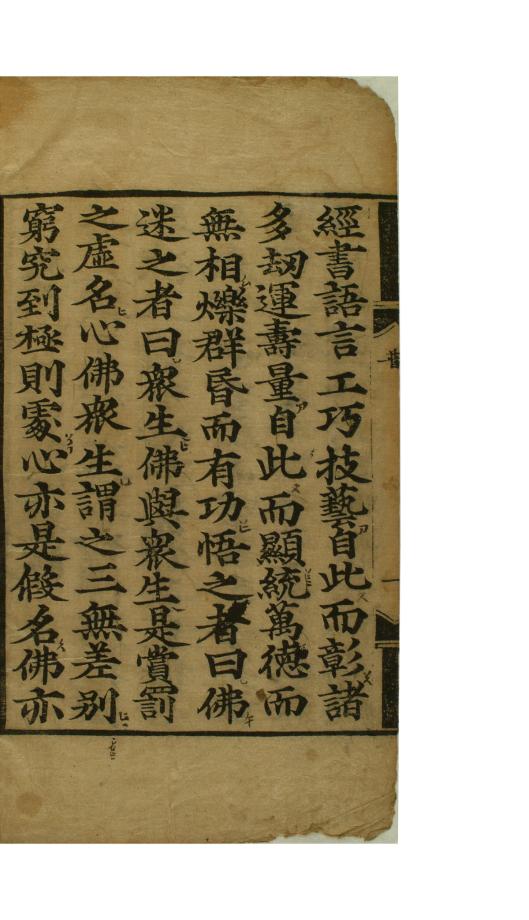 經書語言工巧技藝自此而彰諸
多刼運壽量自此而顯統萬德而
無相爍群昏而有功悟之者曰佛
迷之者曰衆生佛與衆生是賞罰
之虛名心佛衆生謂之三無差別
窮究到極則處心亦是假名佛亦